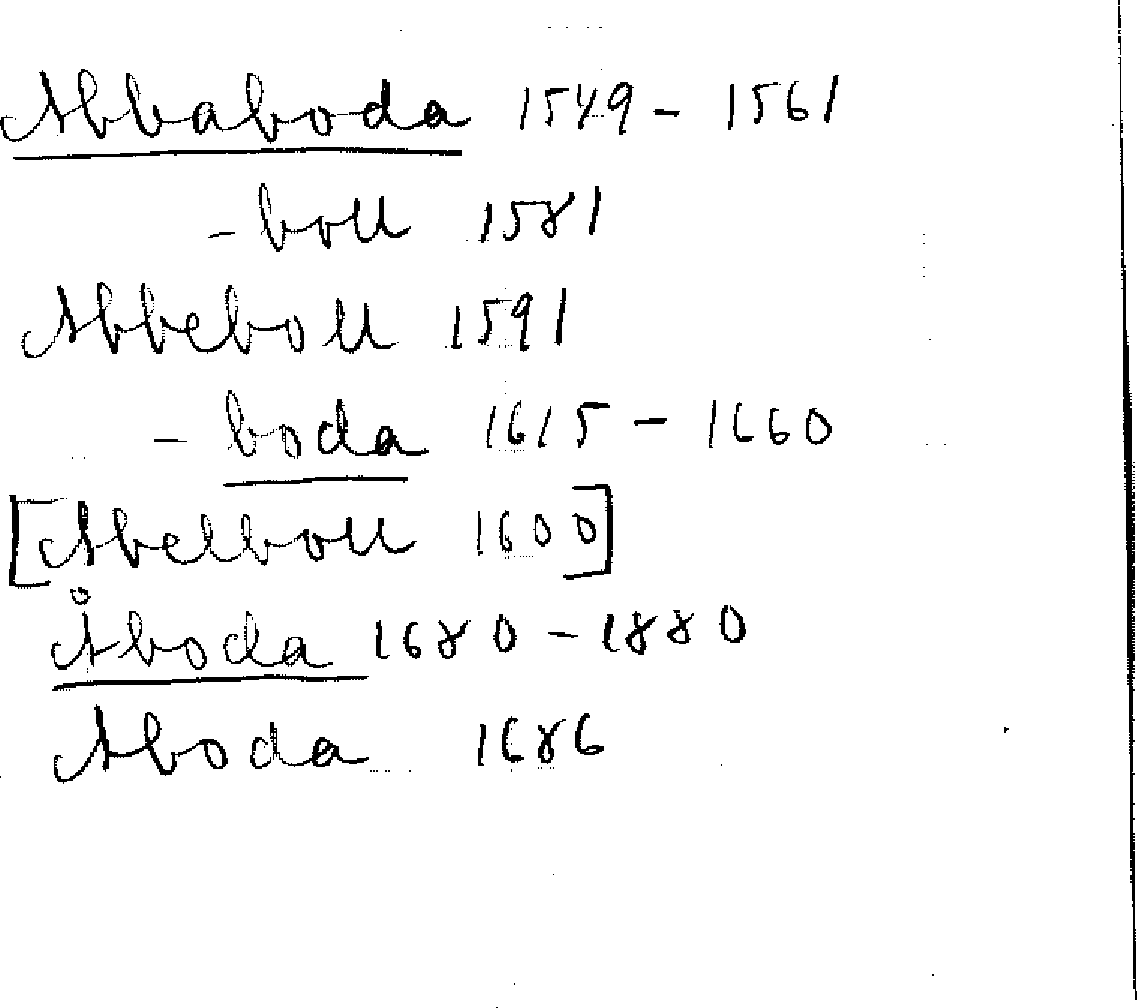 Abbaboda 1549 - 1561
- boll 1581
Abbeboll 1591
- boda 1615 - 1660
[Abelboll 1600]
Åboda 1680 - 1880
Aboda 1686